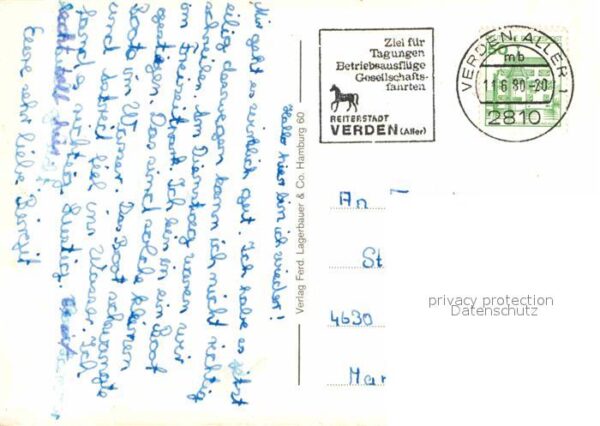 Hallo hier bin ich wieder!
Mir geht es wirklich gut. Ich habe es jetzt
eilig deswegen kann ich nicht richtig
schreiben. Am Dienstag waren wir
im Freizeitpark. Ich bin in ein Boot
gestiegen. Das sind solche kleinen
Boote im Wasser. Das Boot schwankte
und dabei fiel ich ins Wasser. Ich
fand es richtig lustig.
toll hier
Eure sehr liebe Birgit
Verlag Ferd. Lagerbauer & Co. Hamburg 60
Ziel für
Tagungen
Betriebsausflüge
Gesellschafts-
fahrten
REITERSTADT
VERDEN (Aller)
VERDEN, ALLER 1
mb
11.6.80-20
2810
50
An
St
4630
Har
privacy protection
Datenschutz